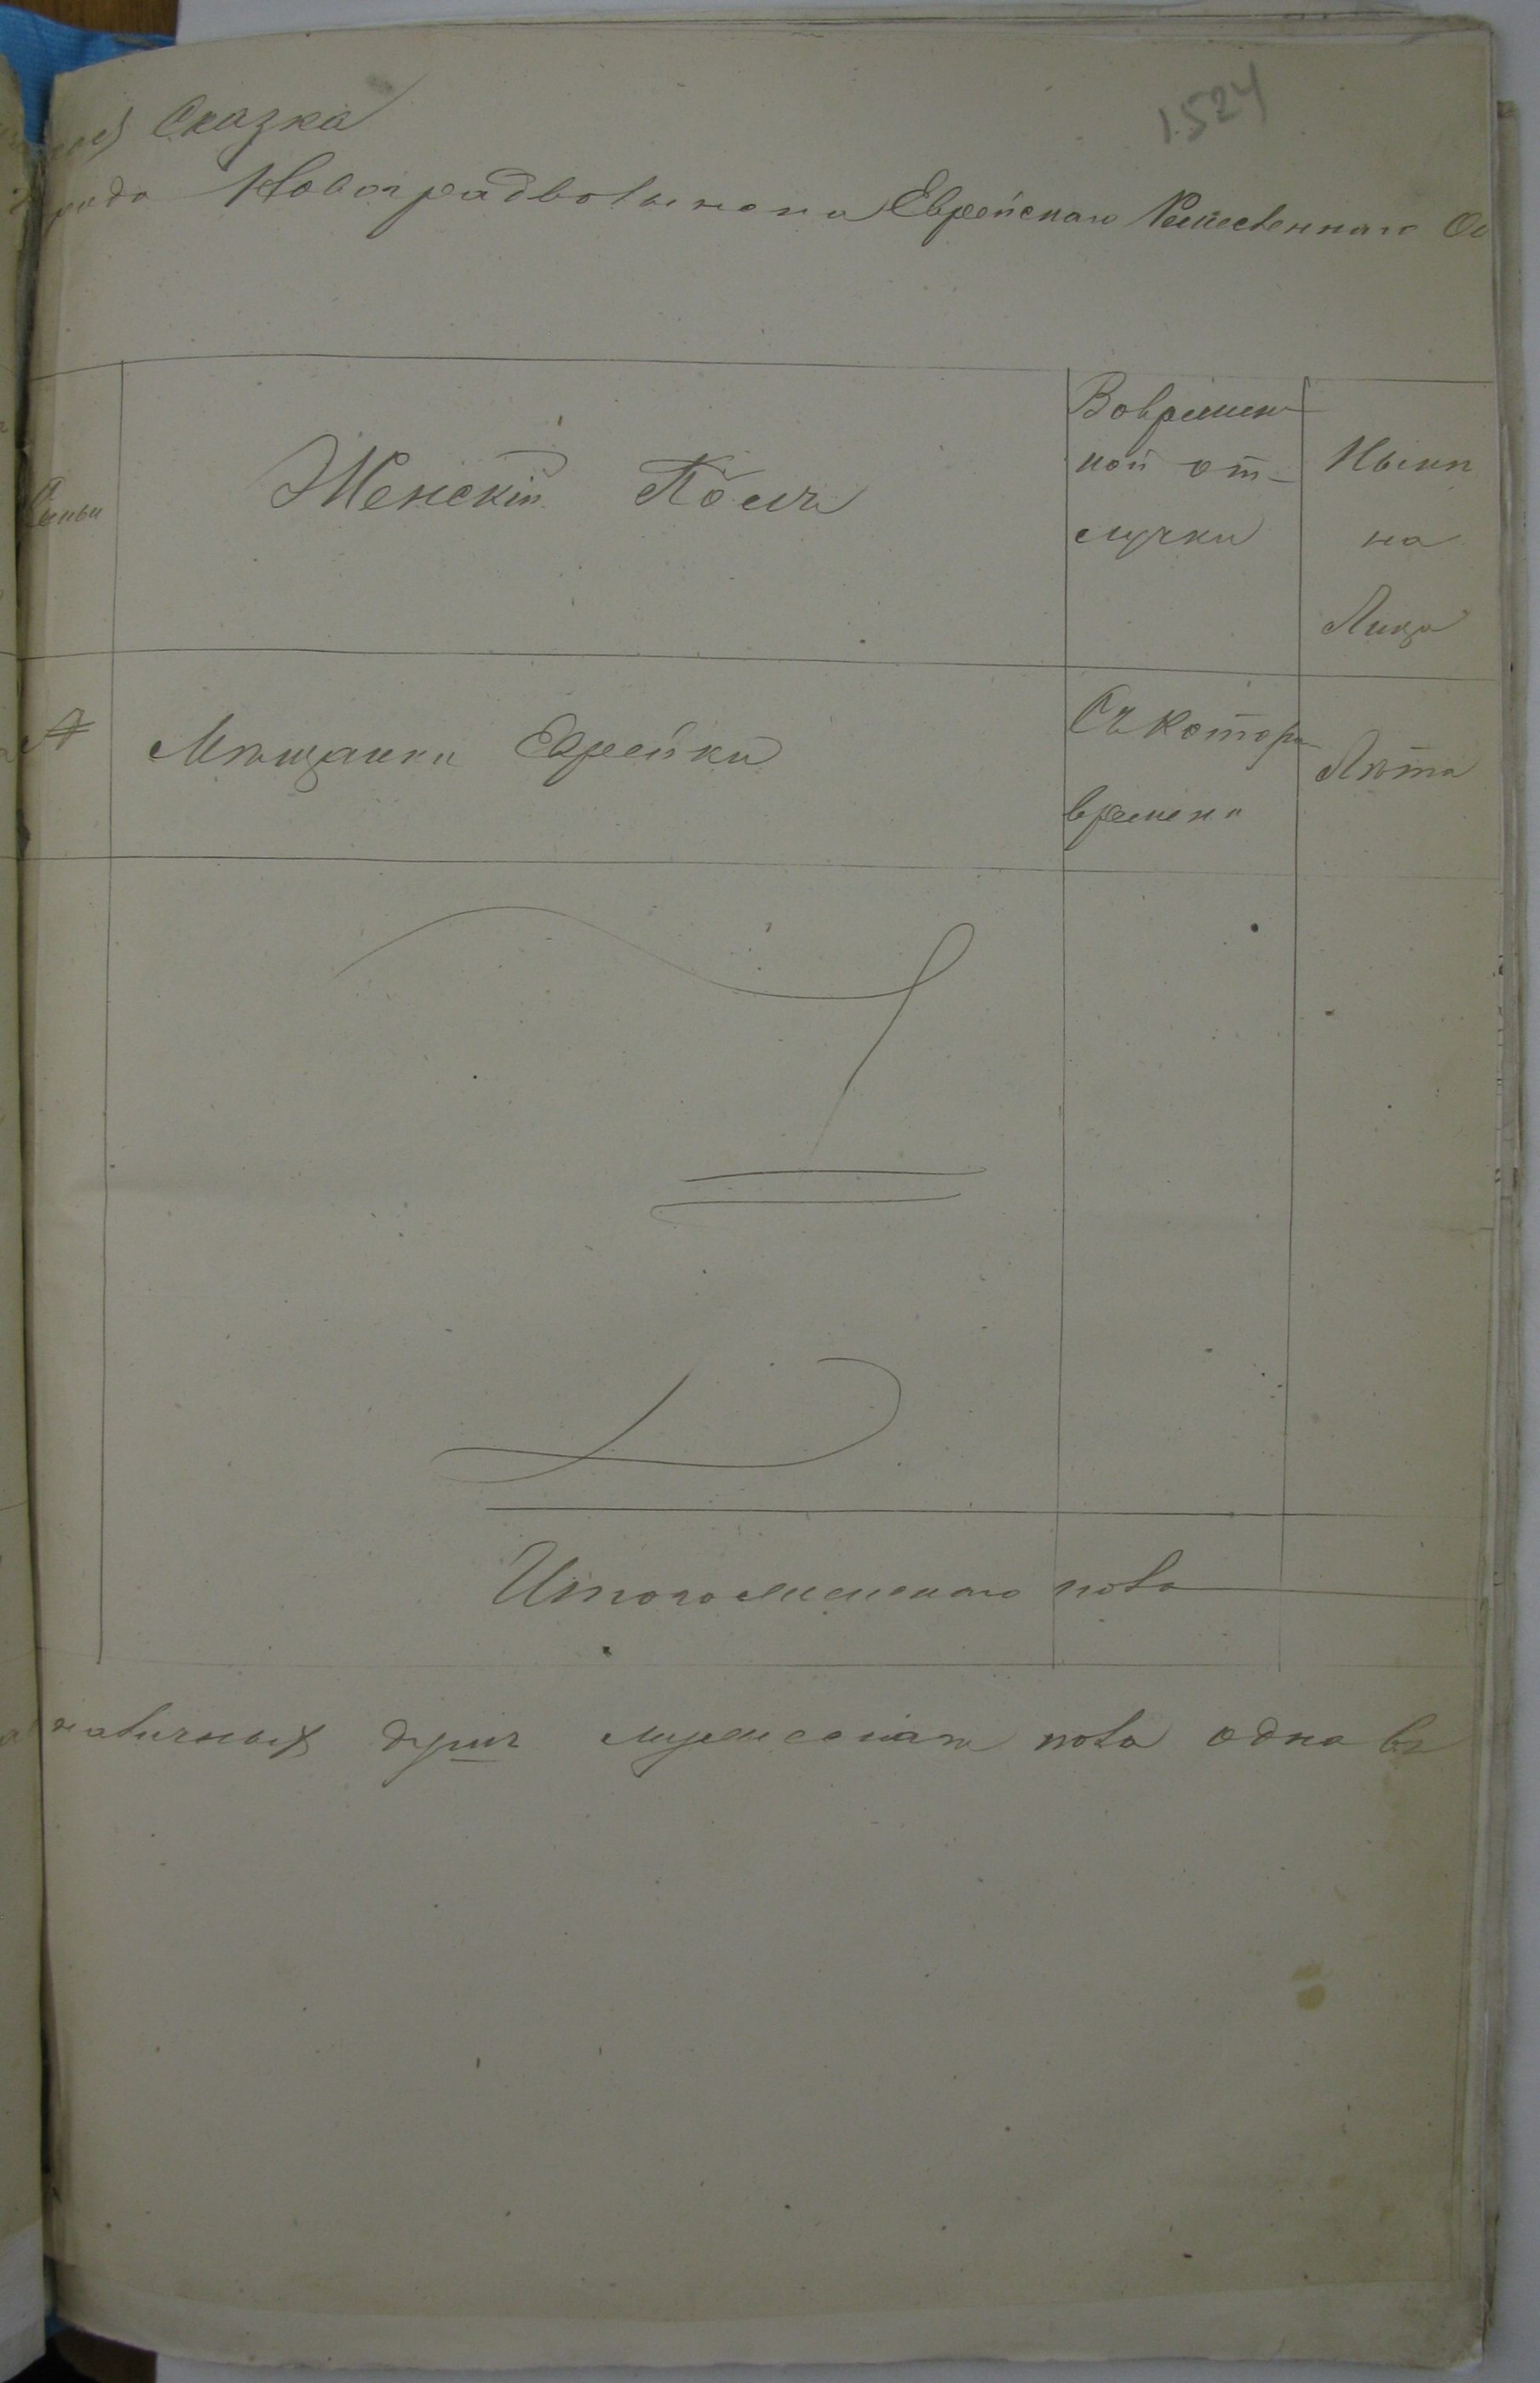 1524
Сказка
рода Новоградволынска Еврейскаго Ремесленнаго
Семьи
Женскій Полъ
Вовремен-
ной от-
лучки
Нынѣ
на
Лицо
№
Мѣщанки Еврейки
Съ котора
времени
Лѣта
Итого женскаго пола
наличныхъ душъ мужескаго пола одна въ